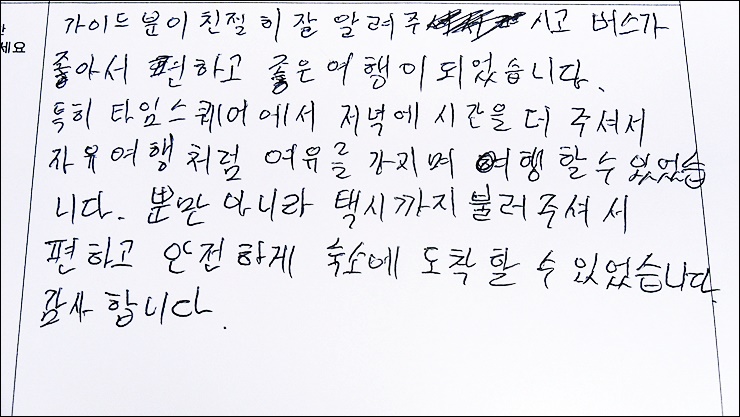 가이드분이 친절히 잘 알려주시고 버스가
세요
좋아서 편하고 좋은 여행이 되었습니다.
특히 타임스퀘어에서 저녁에 시간을 더 주셔서
자유여행처럼 여유를 가지며 여행할 수 있었습
니다. 뿐만 아니라 택시까지 불러주셔서
편하고 안전하게 숙소에 도착할 수 있었습니다.
감사합니다.